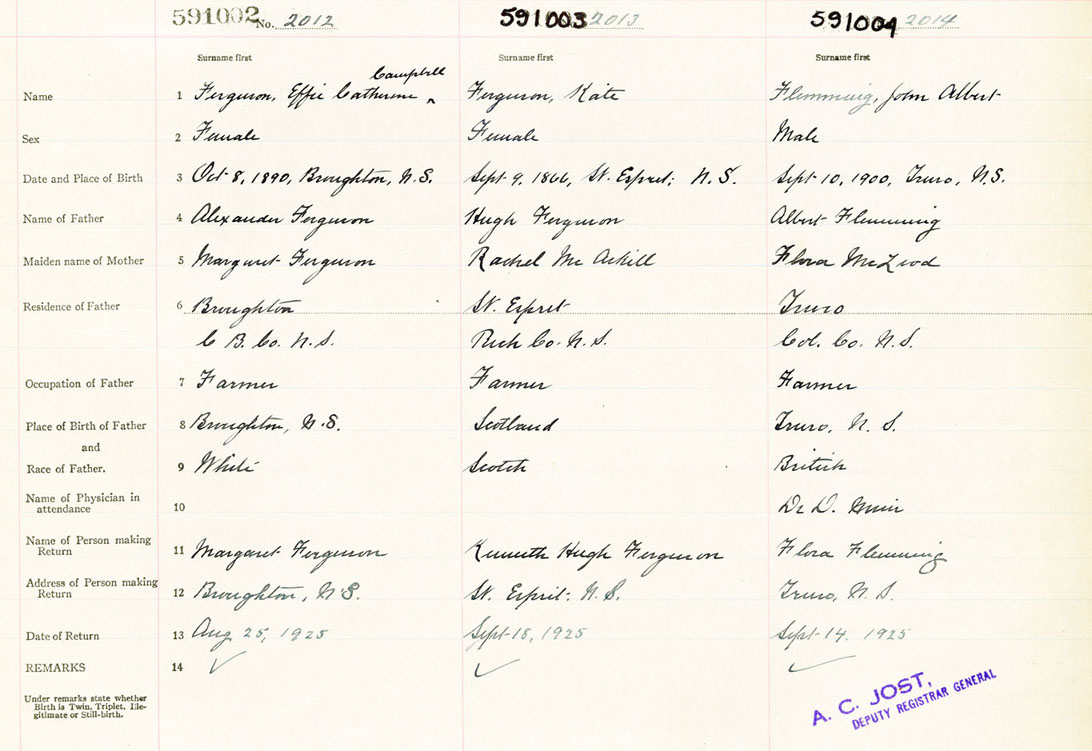 591002 No. 2012 591003 2013 591004 2014
Surname first Surname first Surname first
Campbell
Name 1 Ferguson, Effie Catherine ^ Ferguson, Kate Flemming, John Albert
Sex 2 Female Female Male
Date and Place of Birth 3 Oct 8, 1890, Broughton, N.S. Sept 9, 1866, St. Esprit; N.S. Sept 10, 1900, Truro, N.S.
Name of Father 4 Alexander Ferguson Hugh Ferguson Albert Flemming
Maiden name of Mother 5 Margaret Ferguson Rachel Mc Askill Flora McLeod
Residence of Father 6 Broughton St. Esprit Truro
C B. Co. N.S. Rich Co. N.S. Col. Co. N.S.
Occupation of Father 7 Farmer Farmer Farmer
Place of Birth of Father 8 Broughton, N.S. Scotland Truro, N. S.
and
Race of Father. 9 White Scotch British
Name of Physician in
attendance 10 Dr D. Muir
Name of Person making
Return 11 Margaret Ferguson Kenneth Hugh Ferguson Flora Flemming
Address of Person making
Return 12 Broughton, N.S. St. Esprit. N.S. Truro, N.S.
Date of Return 13 Aug 25, 1925 Sept 18, 1925 Sept 14. 1925
REMARKS 14 ✓ ✓ ✓
Under remarks state whether
Birth is Twin, Triplet, Ille-
gitimate or Still-birth.
A. C. JOST,
DEPUTY REGISTRAR GENERAL